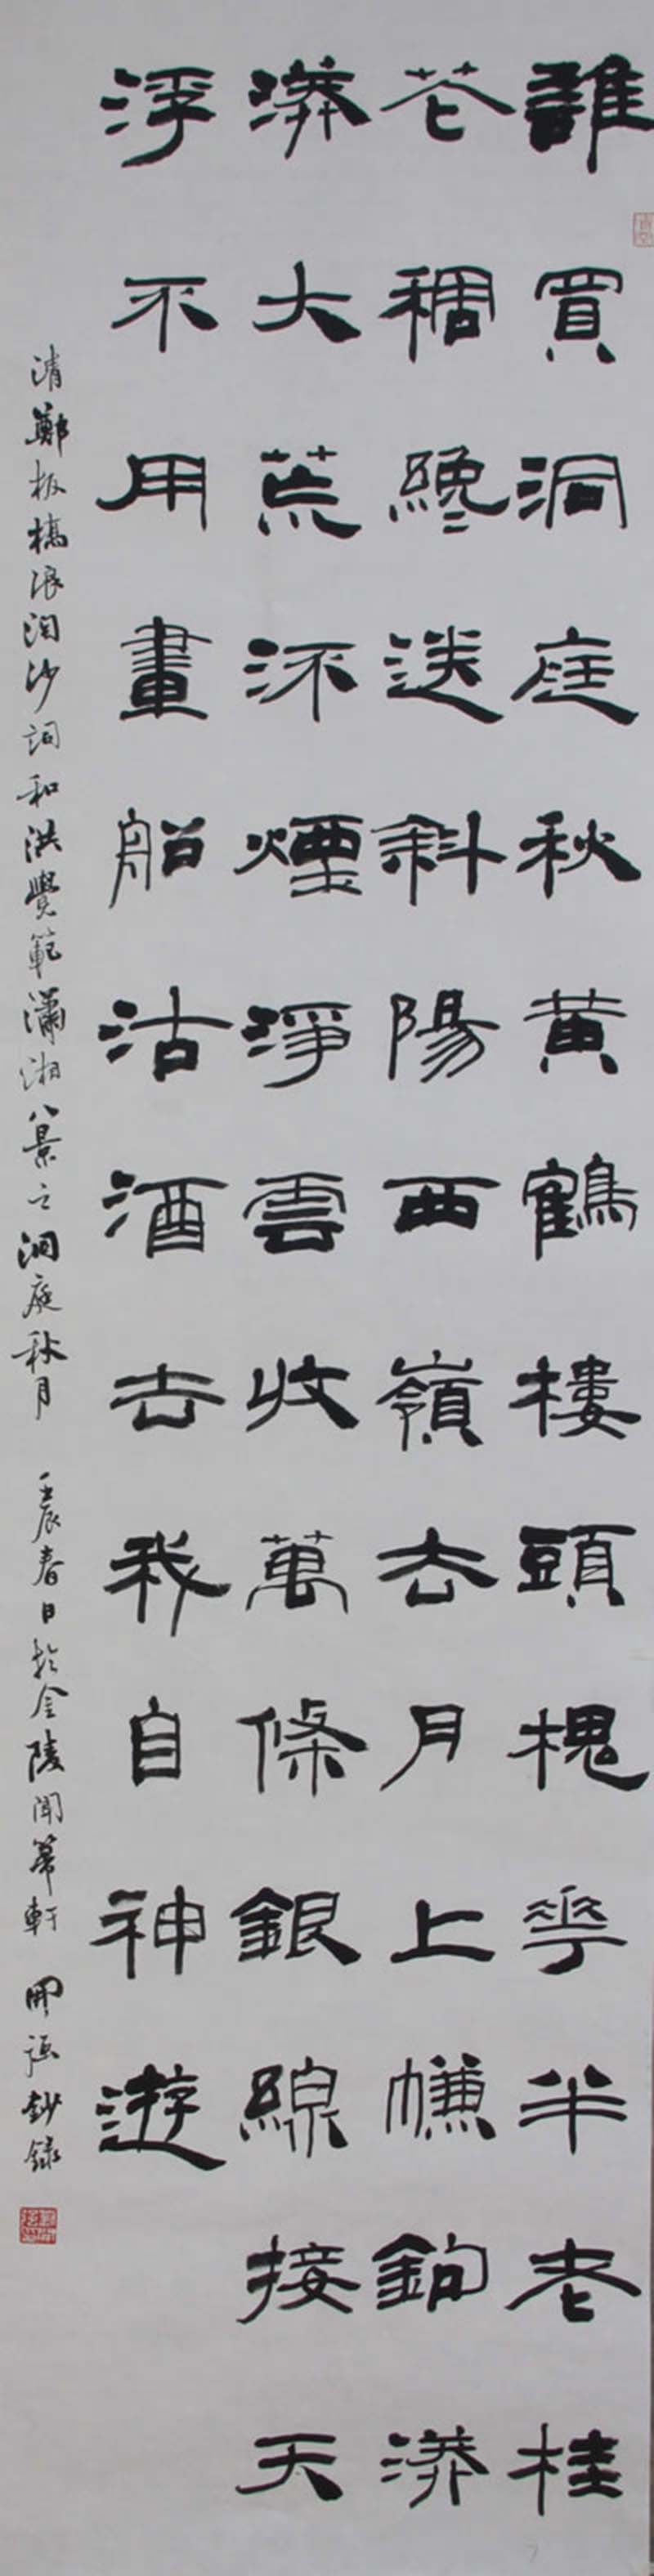 誰買洞庭秋黄鶴樓頭槐花半老桂
花稠纔送斜陽西嶺去月上幰鉤漭
漭大荒流煙淨雲收萬條銀線接天
浮不用畫船沽酒去我自神遊
清鄭板橋浪淘沙詞和洪覺範瀟湘八景之洞庭秋月 壬辰春日於金陵聞箏軒 開強鈔錄